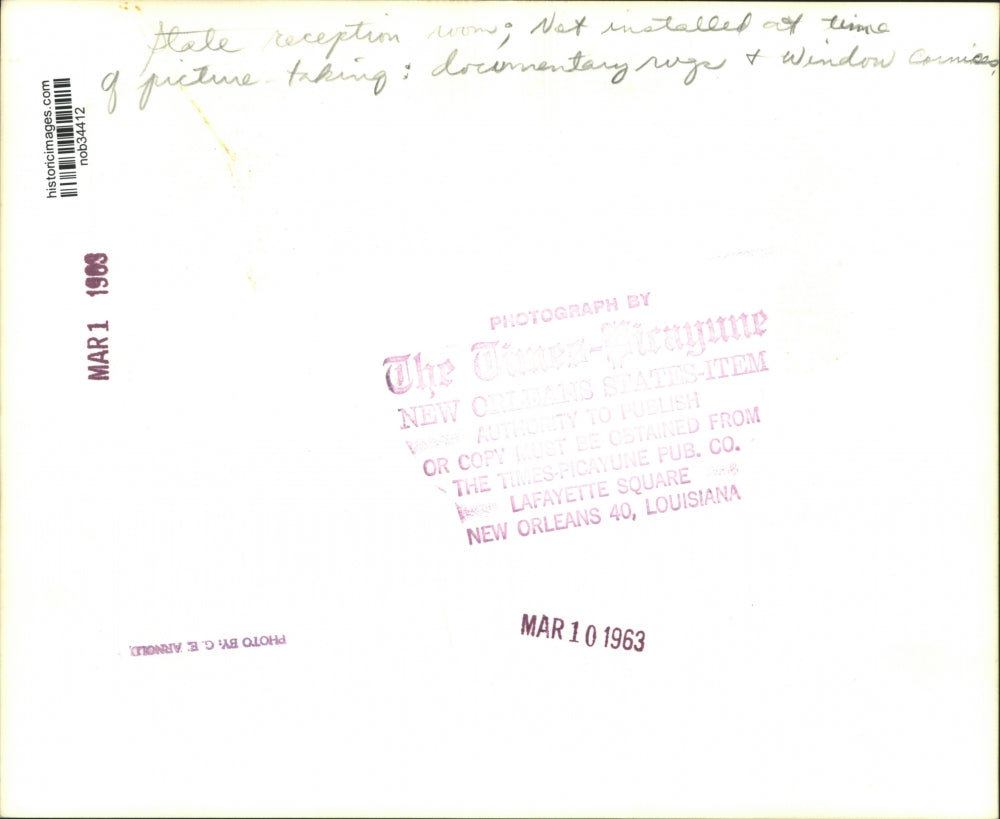 State reception room; Not installed at time
of picture taking: documentary rugs + Window Cornices,
historicimages.com
nob34412
MAR 1 1963
PHOTOGRAPH BY
The Times-Picayune
NEW ORLEANS STATES-ITEM
AUTHORITY TO PUBLISH
OR COPY MUST BE OBTAINED FROM
THE TIMES-PICAYUNE PUB. CO.
LAFAYETTE SQUARE
NEW ORLEANS 40, LOUISIANA
MAR 10 1963
PHOTO BY: G. E. ARNOLD